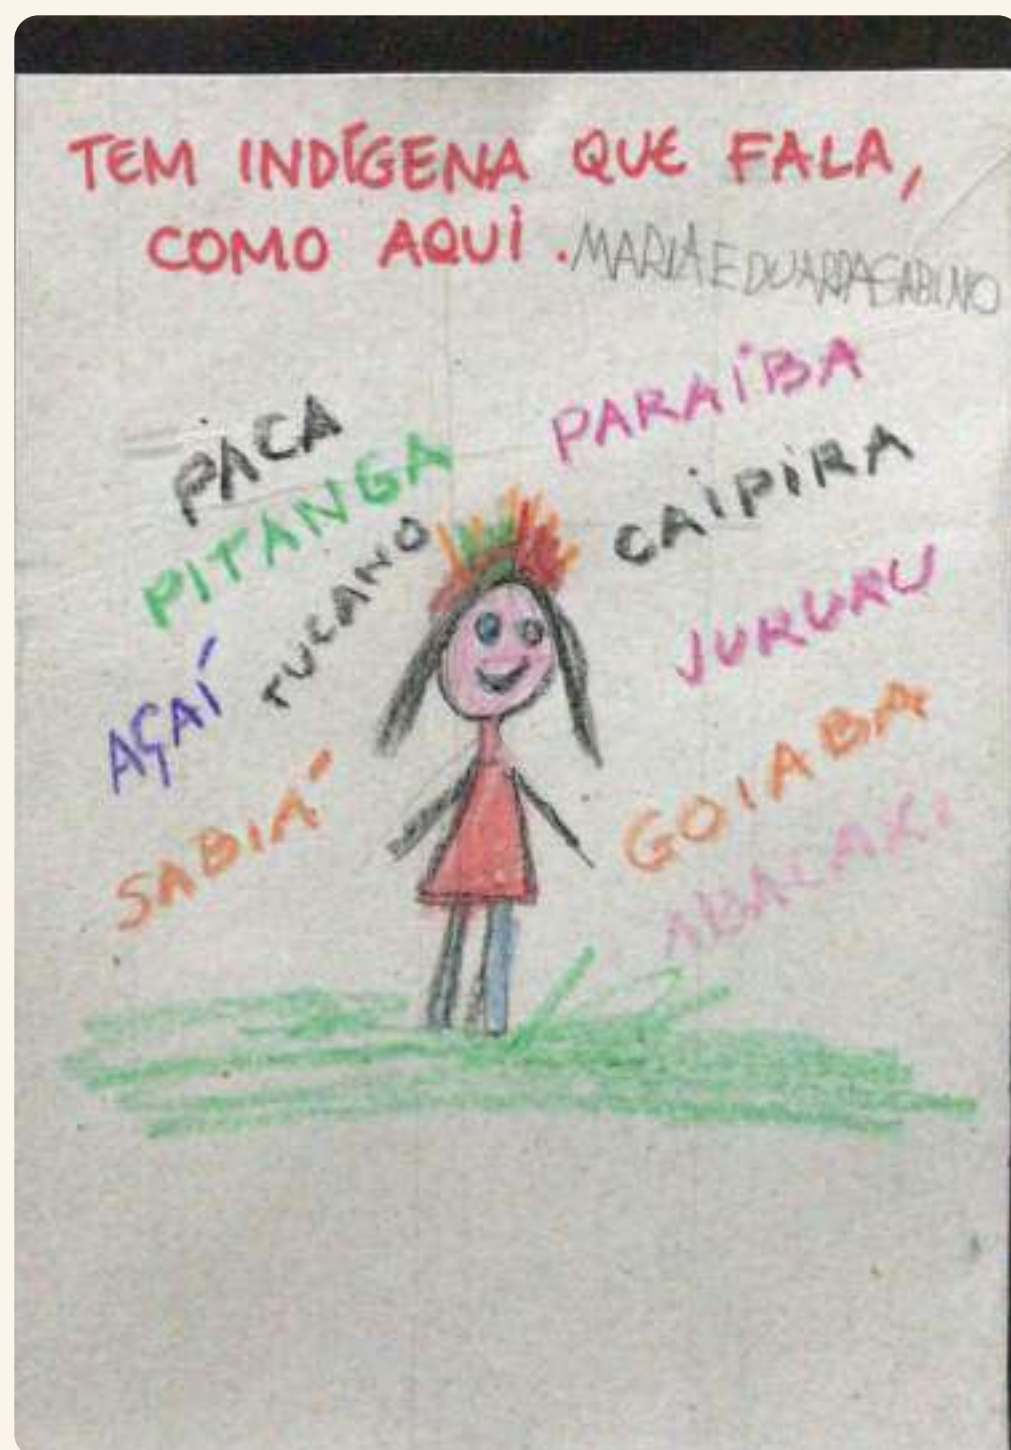 TEM INDÍGENA QUE FALA,
COMO AQUI.
MARIA EDUARDA SABINO
PACA
PITANGA
TUCANO
AÇAÍ
SABIÁ
PARAÍBA
CAIPIRA
JURURU
GOIABA
ABACAXI